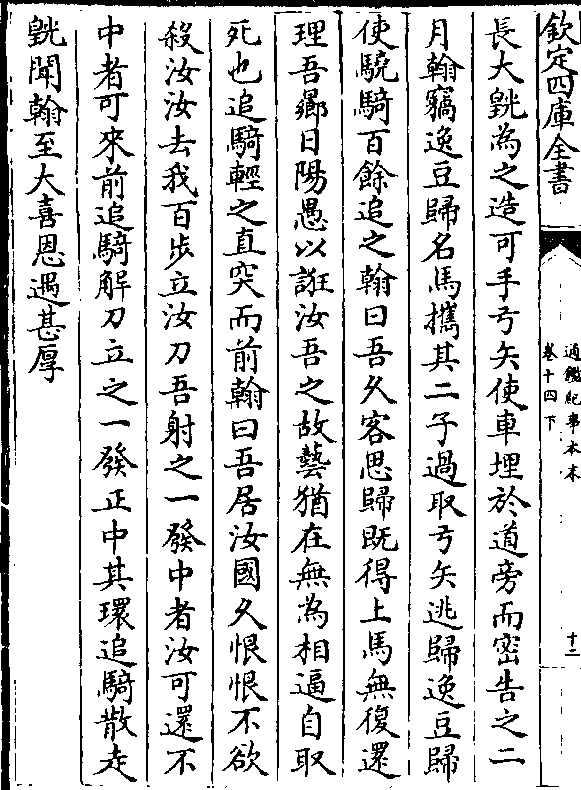 欽定四庫全書
通鑑紀事本末
卷十四下
十二
長大皝為之造可手弓矢使車埋於道旁而密告之二
月翰竊逸豆歸名馬攜其二子過取弓矢逃歸逸豆歸
使驍騎百餘追之翰曰吾久客思歸既得上馬無復還
理吾鄉日陽愚以誑汝吾之故藝猶在無為相逼自取
死也追騎輕之直突而前翰曰吾居汝國久恨恨不欲
殺汝汝去我百步立汝刀吾射之一發中者汝可還不
中者可來前追騎解刀立之一發正中其環追騎散走
皝聞翰至大喜恩遇甚厚